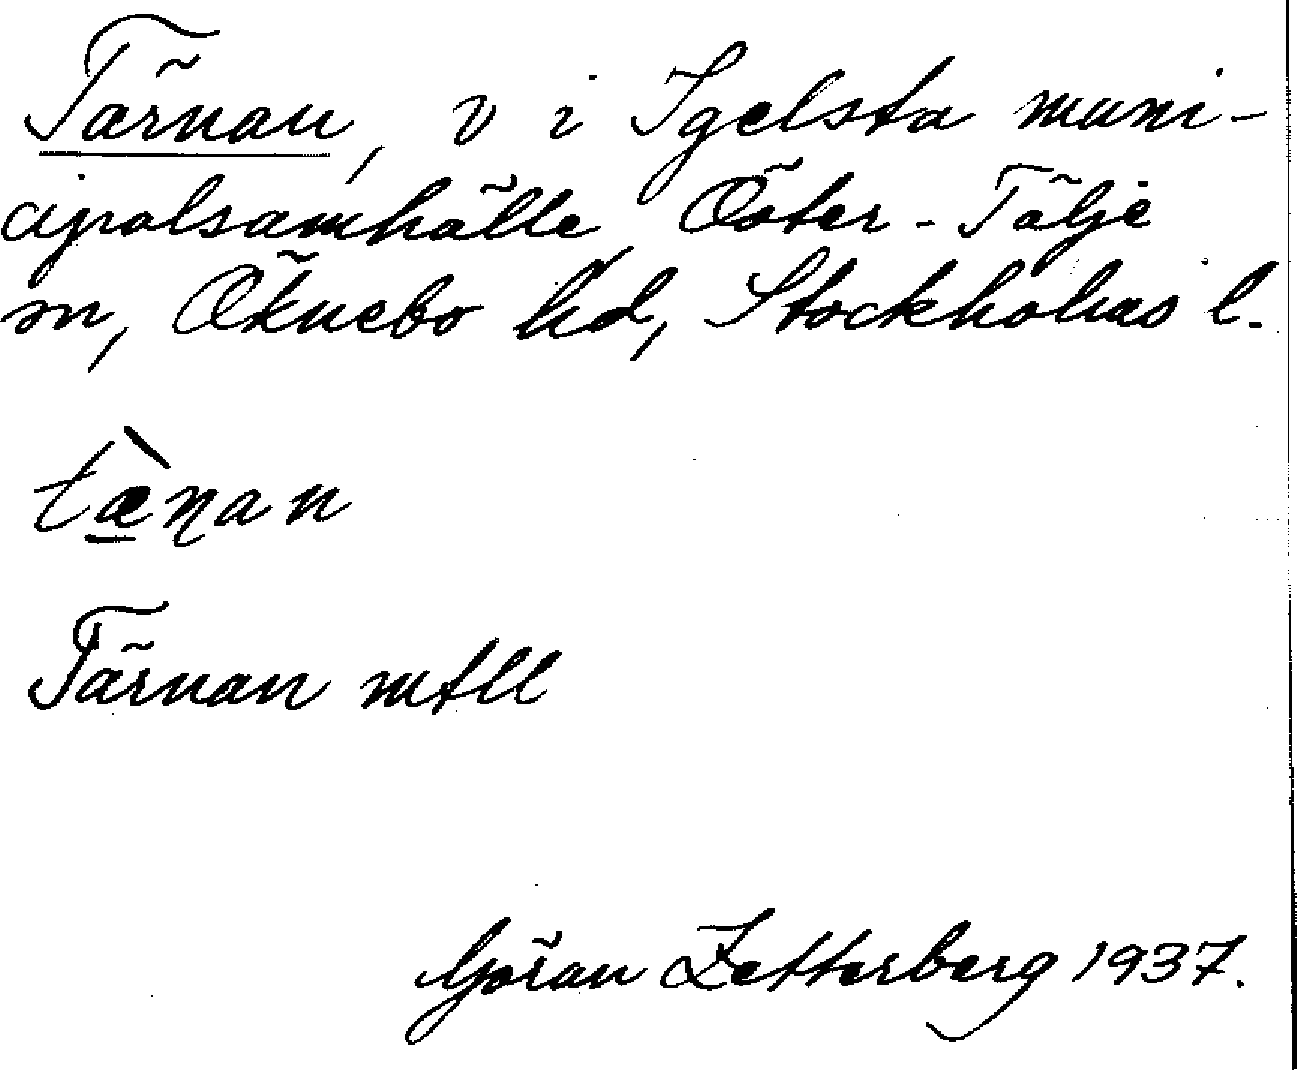 Tärnan, v i Igelsta muni-
cipalsamhälle, Öster-Tälje
sn, Öknebo hd, Stockholms l.
tæ̀ɳan
Tärnan mtll
Göran Zetterberg 1937.